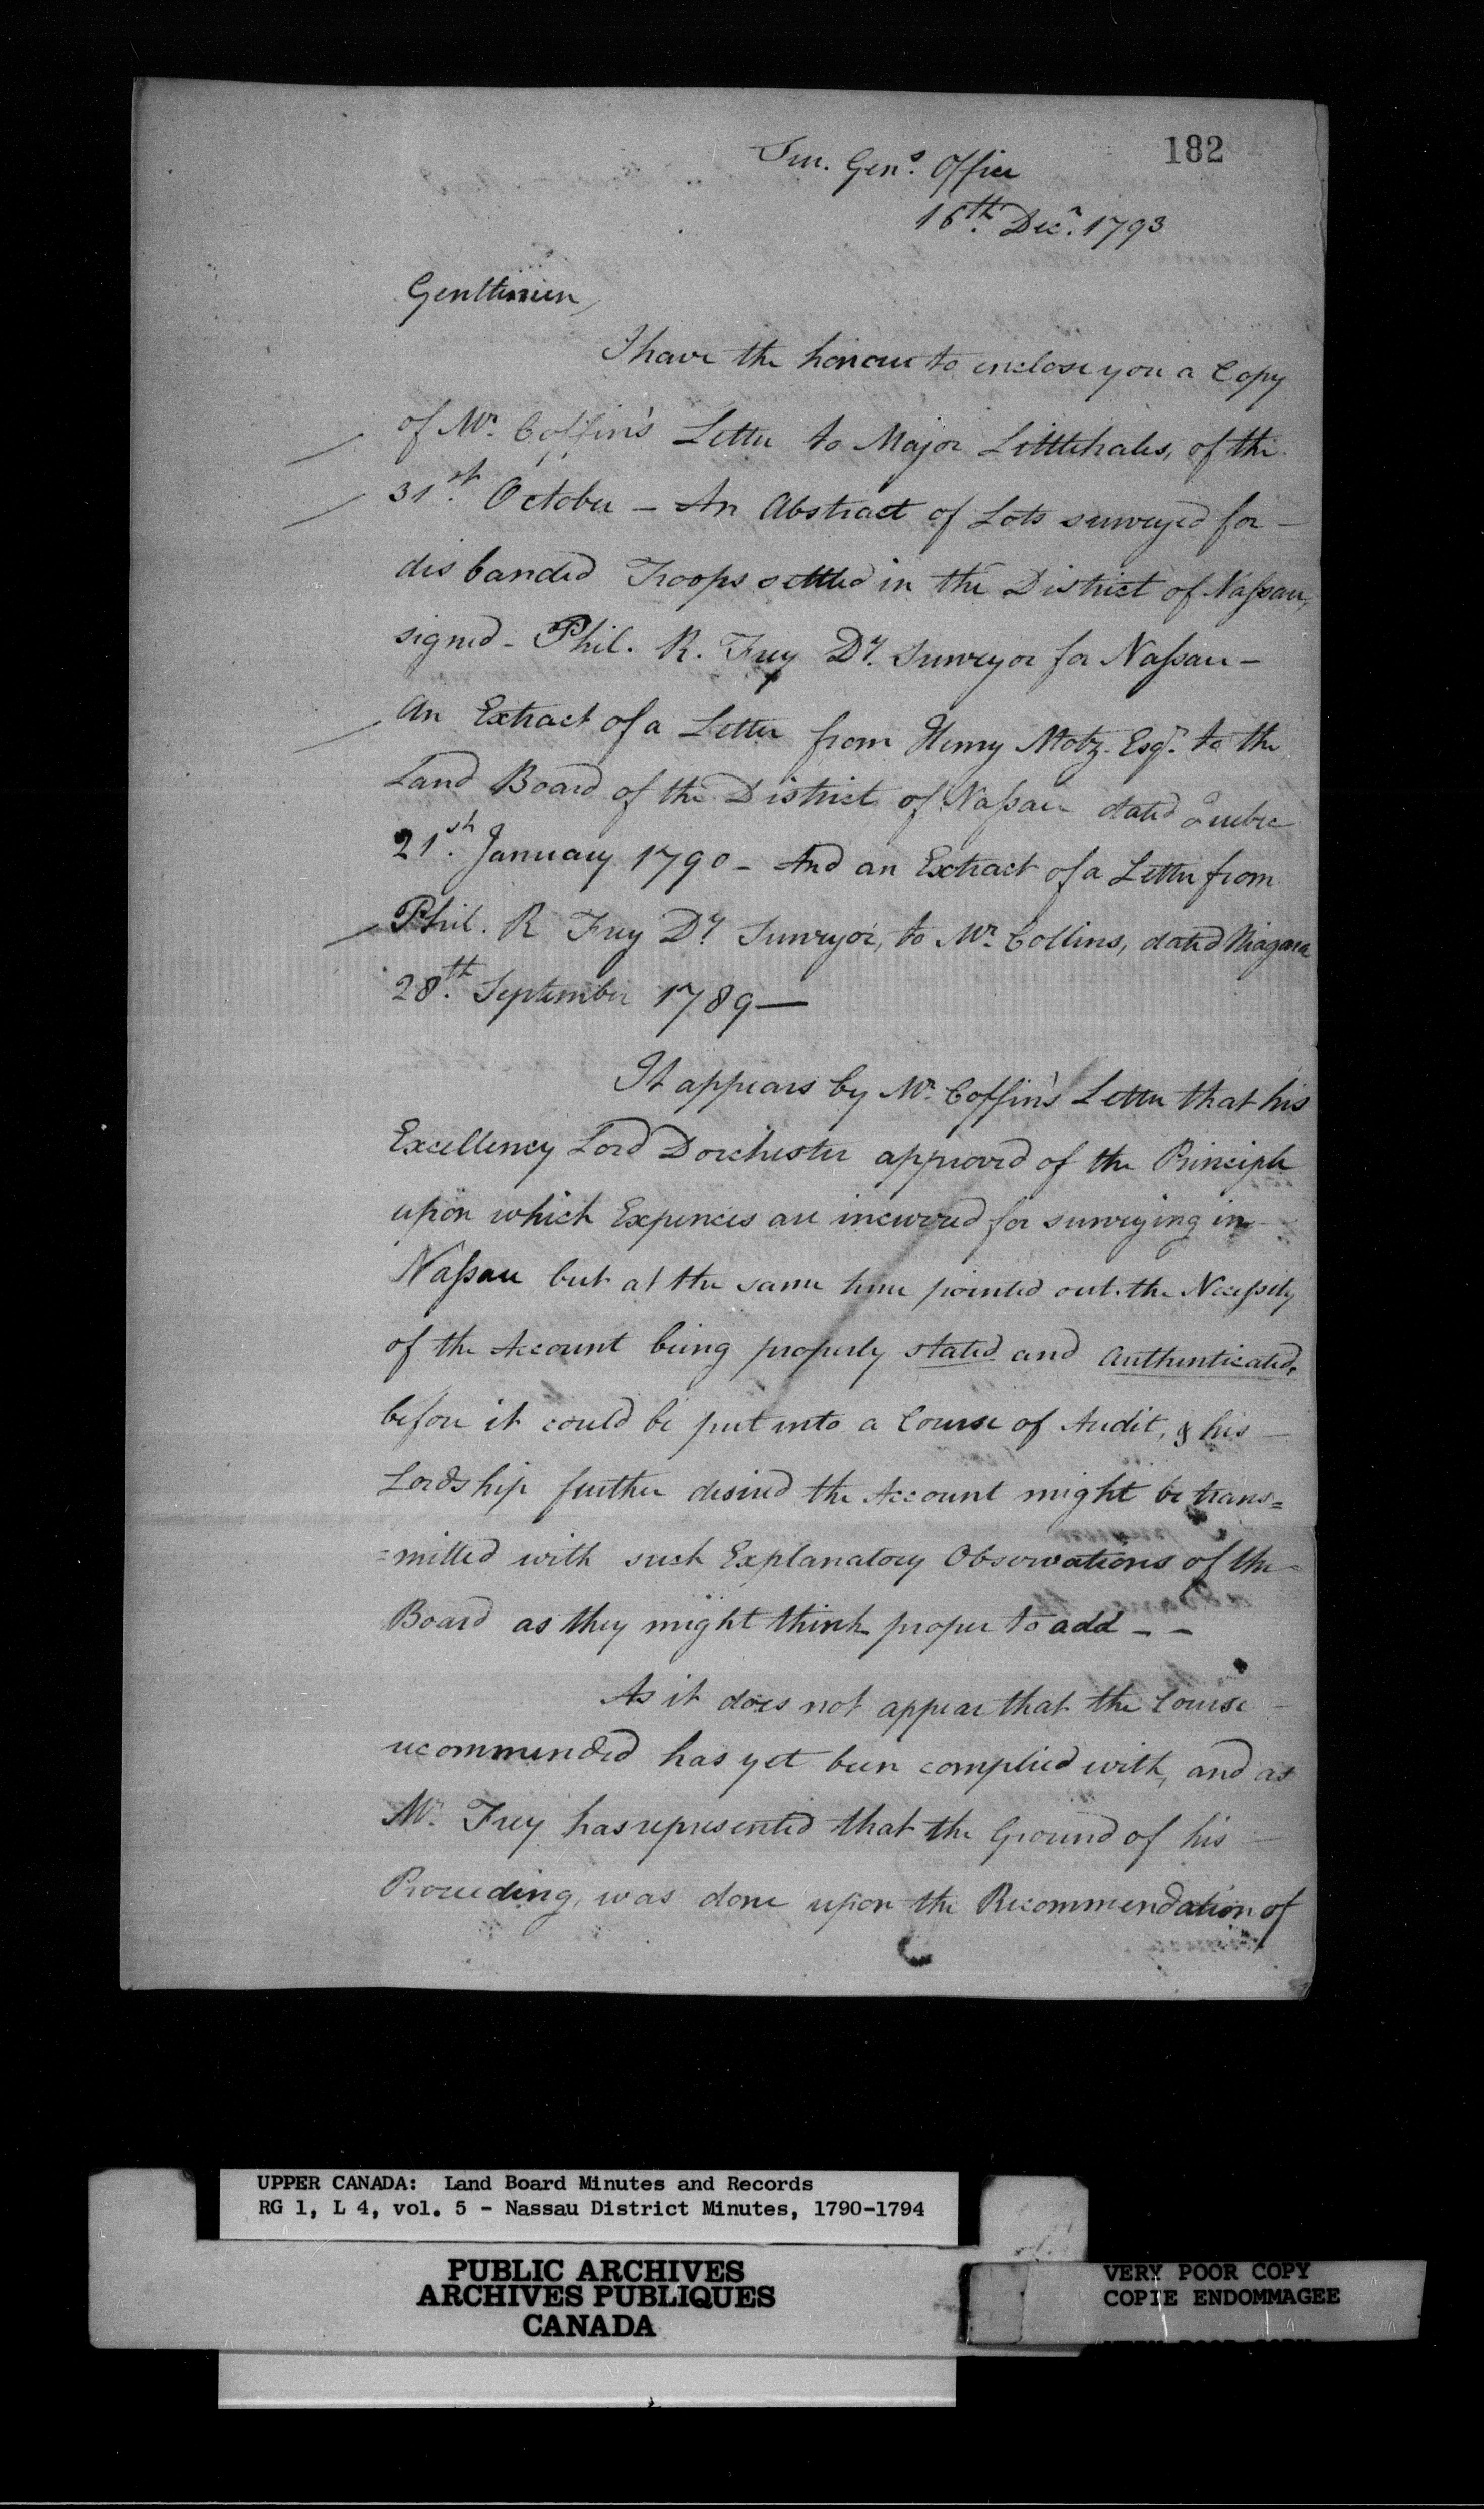 182
Sur. Gen.s Office
16th. Decr. 1793
Gentlemen,
I have the honour to enclose you a Copy
of Mr. Coffin's Letter to Major Littlehales, of the
31st. October - An Abstract of Lots surveyed for -
disbanded Troops settled in the District of Naſsau,
signed - Phil. R. Frey Dy. Surveyor for Naſsau -
An Extract of a Letter from Henry Motz Esqr. to the
Land Board of the District of Naſsau dated Quebec
21st. January 1790 - And an Extract of a Letter from
Phil. R Frey Dy Surveyor, to Mr. Collins, dated Niagara
28th. September 1789 —
It appears by Mr. Coffin's Letter that his
Excellency Lord Dorchester approved of the Principle
upon which Expences are incurred for surveying in
Naſsau but at the same time pointed out the Neceſsity
of the Account being properly stated and Authenticated,
before it could be put into a Course of Audit, & his -
Lordship further desired the Account might be trans=
=mitted with such Explanatory Observations of the
Board as they might think proper to add - -
As it does not appear that the Course
recommended has yet been complied with, and as
Mr. Frey has represented that the Ground of his
Proceeding, was done upon the Recommendation of
UPPER CANADA: Land Board Minutes and Records
RG 1, L 4, vol. 5 - Nassau District Minutes, 1790-1794
PUBLIC ARCHIVES
ARCHIVES PUBLIQUES
CANADA
VERY POOR COPY
COPIE ENDOMMAGEE